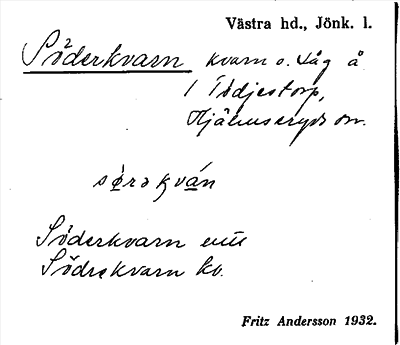 Västra hd., Jönk. l.
Söderkvarn kvarn o. såg å
1 Tödjestorp,
Hjälmseryds sn.
Söderkvarn enl.
Södrekvarn kv.
Fritz Andersson 1932.